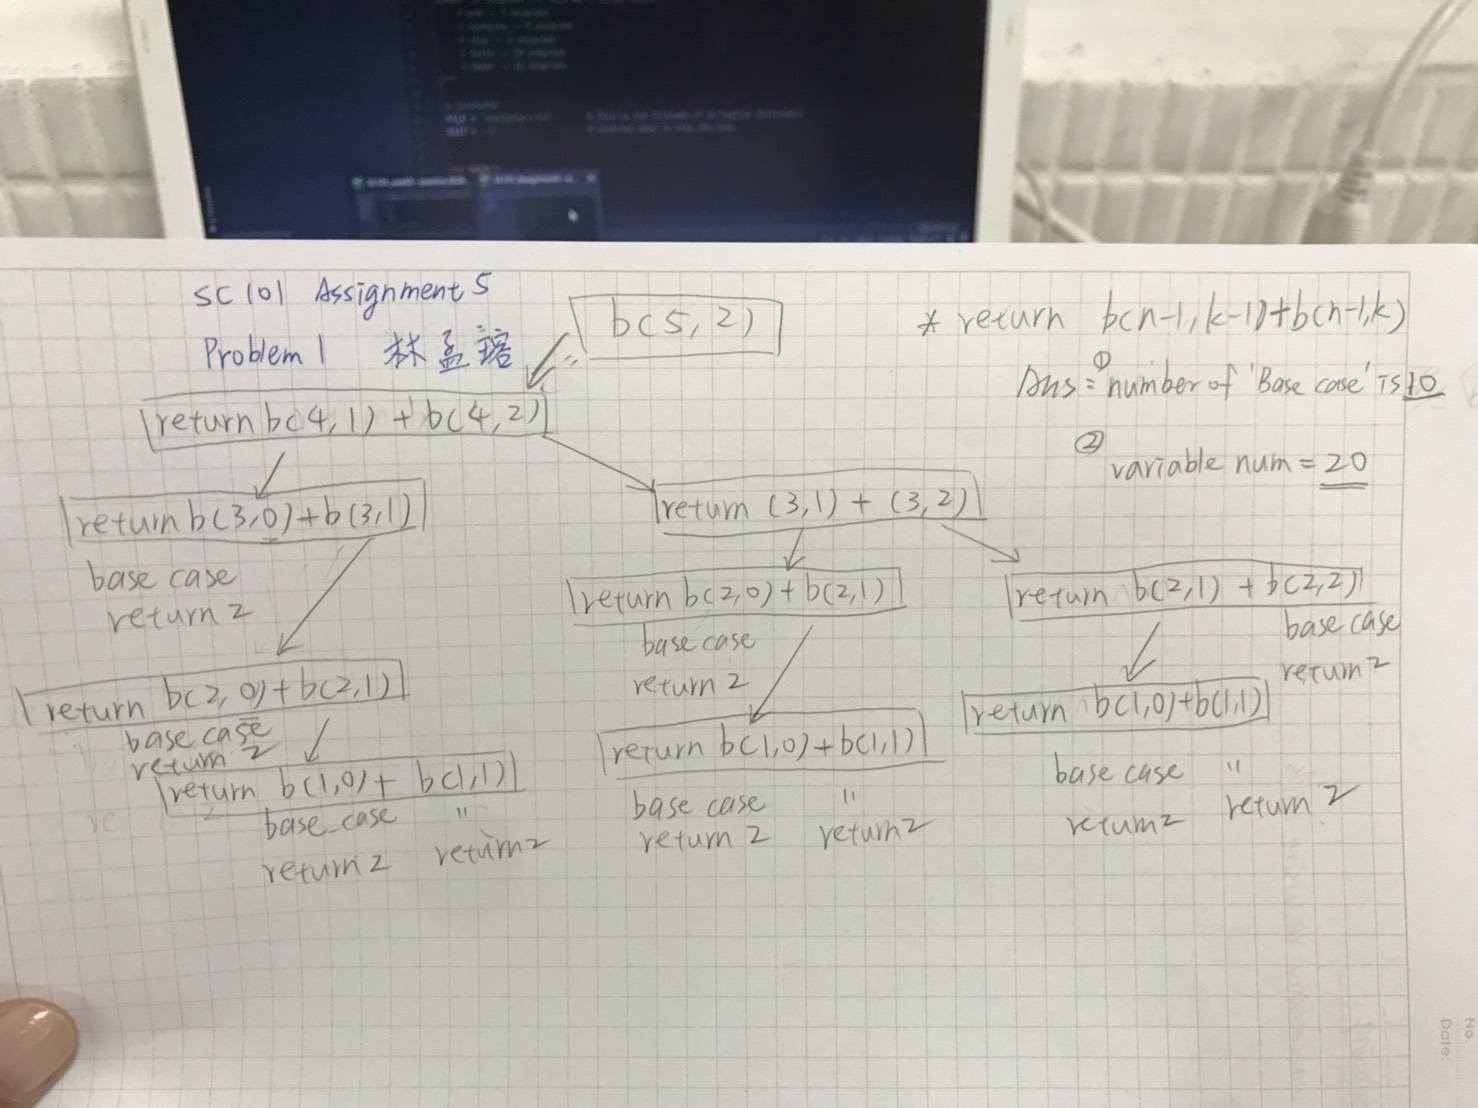 SC101 Assignment 5
Problem 1 林孟鎔
b(5,2)
* return b(n-1,k-1)+b(n-1,k)
Ans = ① number of 'Base case' is 10
② variable num = 20
return b(4,1) + b(4,2)
return b(3,0)+b(3,1)
base case
return 2
return (3,1) + (3,2)
return b(2,0)+b(2,1)
base case
return 2
return b(2,1) + b(2,2)
base case
return 2
return b(2,0)+b(2,1)
base case
return 2
return b(1,0)+ b(1,1)
base case "
return 2 return 2
return b(1,0)+b(1,1)
base case "
return 2 return 2
return b(1,0)+b(1,1)
base case "
return 2 return 2
No.
Date: